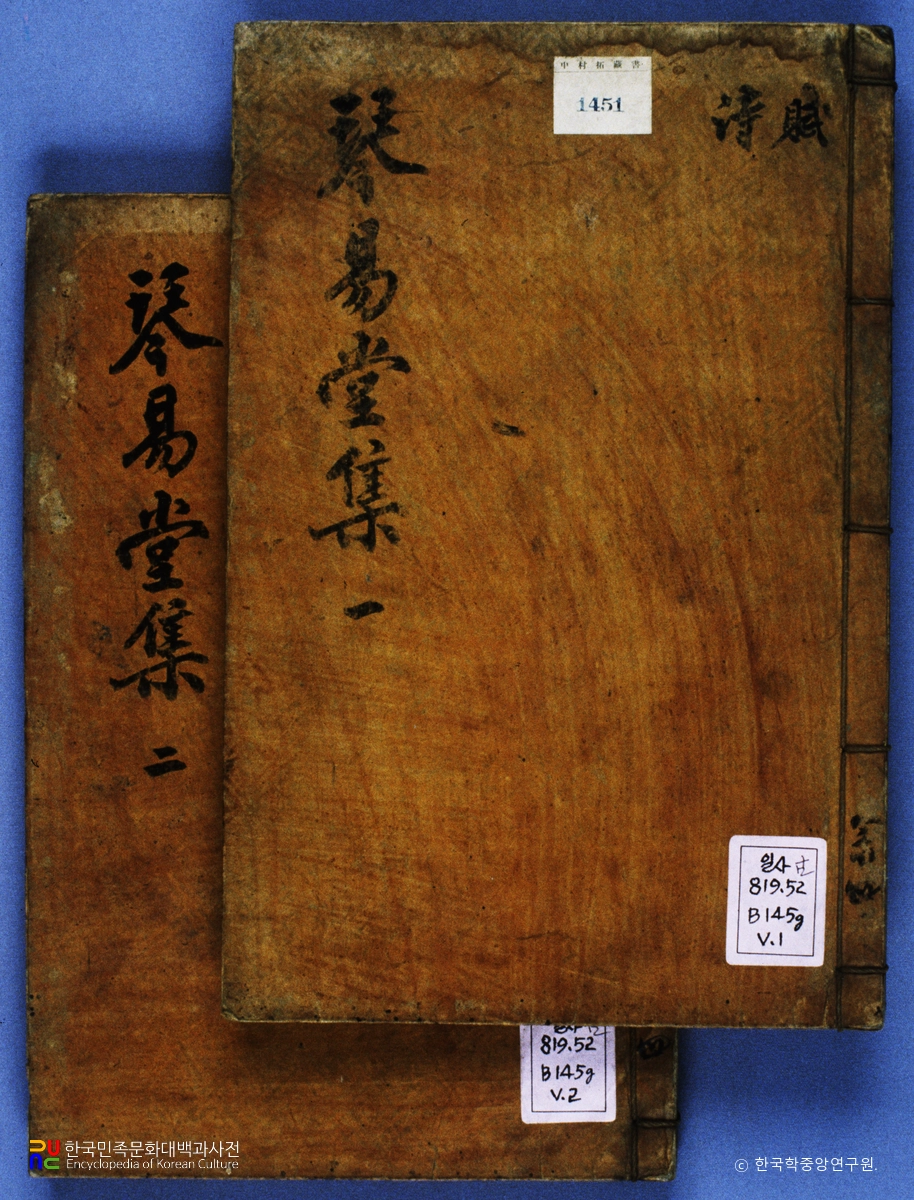 琴易堂集 一
賦
詩
中村拓藏書
1451
일사 古
819.52
B145g
V.1
琴易堂集 二
819.52
B145g
V.2
한국민족문화대백과사전
Encyclopedia of Korean Culture
© 한국학중앙연구원.